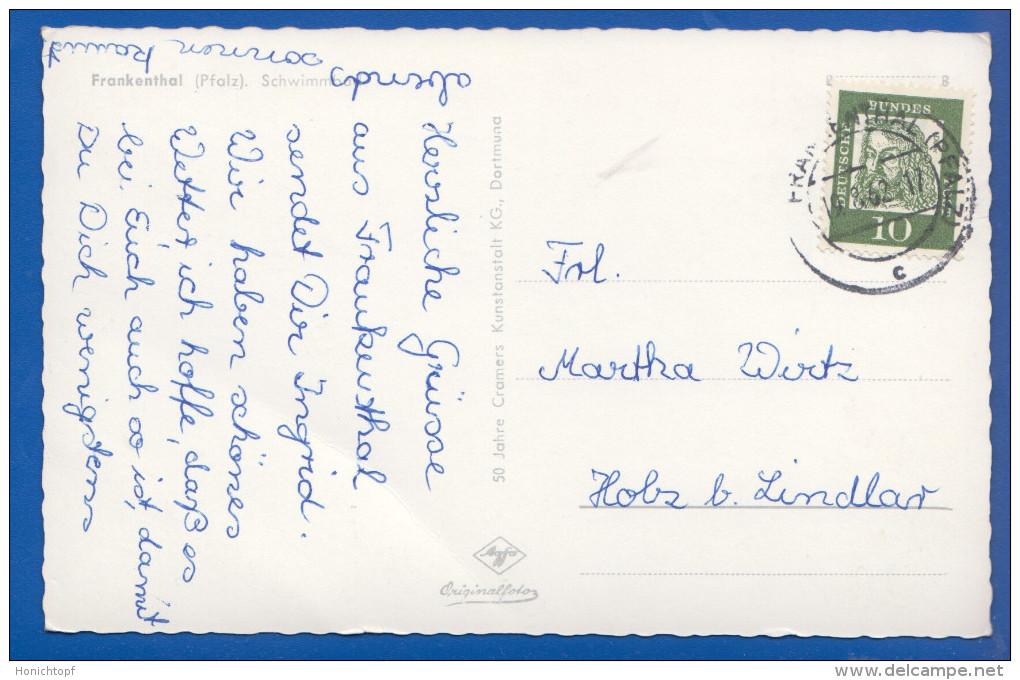 Frankenthal (Pfalz). Schwimmbad
Herzliche Grüsse
aus Frankenthal
sendet Dir Ingrid.
Wir haben schönes
Wetter ich hoffe, daß es
bei Euch auch so ist, damit
Du Dich wenigstens
abends sonnen kannst
50 Jahre Cramers Kunstanstalt KG., Dortmund
Agfa
Originalfoto
DEUTSCHE BUNDES
10
FRANKENTHAL (PFALZ)
c
Frl.
Martha Wirtz
Holz b. Lindlar
Honichtopf
www.delcampe.net